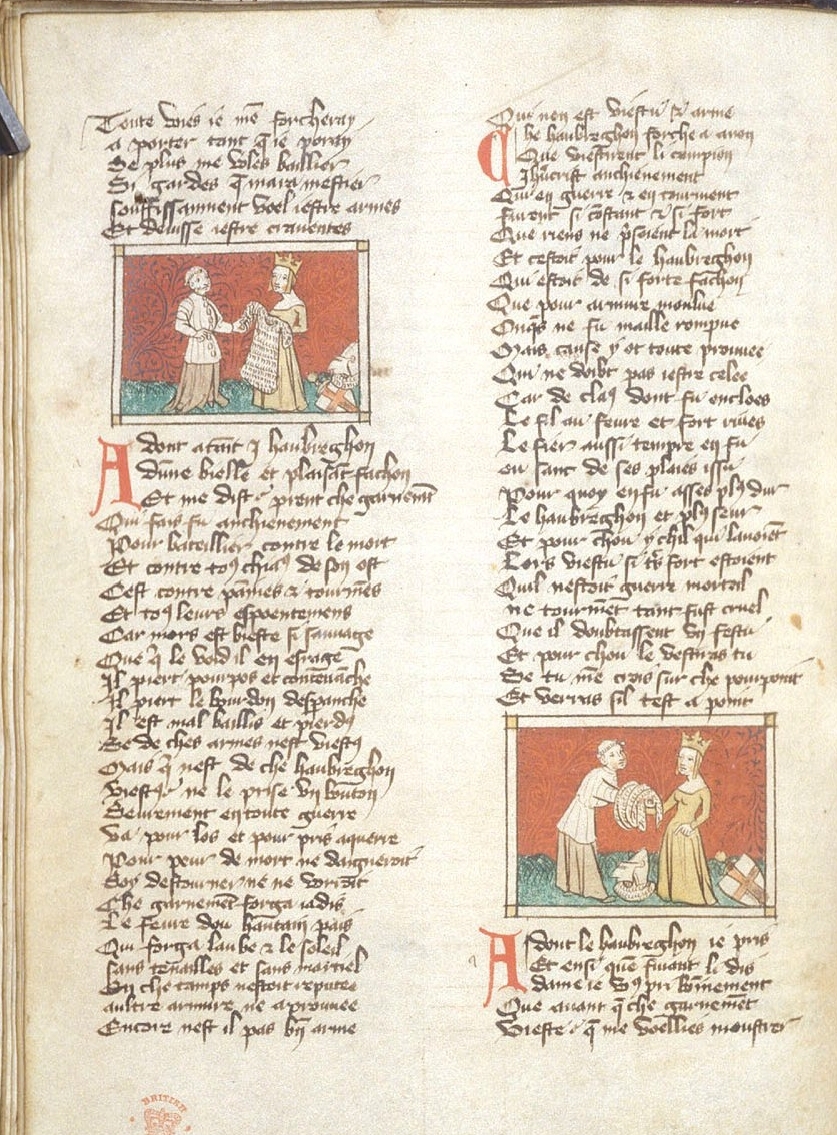 Toute voies ie me forcheray
a porter tant q̄ ie poray
Se plus me voles baillier
Si gardes q̄ mais mestier
souffissanment voel iestre armes
Et deuisse iestre crauentes
Adont atant j haubreghon
dune bielle et plaisāt fachon
Et me dist prent che garnemt̄
Qui fais fu anchienement
Pour bateillier contre le mort
Et contre to9 chia9 de son ost
Cest contre pāines & tourmēs
Et to9 leurs espoentemens
Car mors est bieste si sauuage
Que q̄ le void il en esrage
Il piert pourpos et contenāche
Il piert le bourdon despanche
Il est mal baillis et pierd9
Se de ches armes nest viest9
Mais q̄ nest de che haubreghon
viest9 ne le prise vn bouton
Seurement en toute guerre
va pour los et pour pris aquerre
Pour peur de mort ne daigneroit
Soy destourner ne ne vorroit
Che garnemēt forga iadis
Le feure dou hautain pais
Qui forga laube & le soleil
sans tenailles et sans martiel
En che tamps nestoit reputee
aultre armure ne aprouuee
Encore nest il pas bn̄ arme
Qui nen est viestu & arme
Che haubreghon forche a a non
Que viestirent li campion
Ihucrist anchienement
Qui en guerre & en tourment
furent si cōstant & si fort
Que riens ne p̄soient la mort
Et cestoit pour le haubreghon
Qui estoit de si forte fachon
Que pour armure moulue
Onq̄s ne fu maille rompue
Mais cause y ot toute prouuee
Qui ne doibt pas iestre celee
Car de cla9 dont fu encloes
Le fil au feure et fort riues
Le fier aussi tempre en fu
ou sanc de ses plaies issu
Pour quoy en fu asses pl9 dur
Le haubreghon et pl9 seur
Et pour chou y chil qui lauoiēt
Lors viestu si ts̄ fort estoient
Quil nestoit guerre mortel
ne tourmēt tant fust cruel
Que il doubtassent vn festu
Et pour chou le vestiras tu
Se tu me crois sur che pourpoint
Et verras sil test a point
Adont le haubreghon ie pris
Et ensi que siuant li dis
dame ie vo9 pri bōnement
Que auant q̄ che garnemēt
vieste q̄ me voellies moustrer
BRITISH